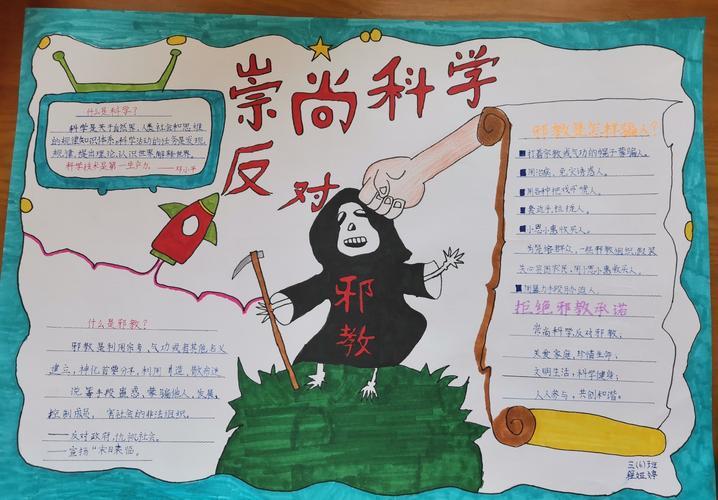 崇尚科学
反对
什么是科学?
科学是关于自然界、人类社会和思维
的规律知识体系。科学活动的任务是发现
规律、提出理论、认识世界、解释世界。
科学技术是第一生产力。——邓小平
什么是邪教?
邪教是利用宗教、气功或者其他名义
建立,神化首要分子,利用 散布
说等手段蛊惑、蒙骗他人,发展、
控制成员, 害社会的非法组织。
——反对政府,仇视社会。
——宣扬“末日来临。
邪教
邪教是怎样骗人?
打着宗教或气功的幌子蒙骗人。
用治病、免灾诱惑人。
用各种把戏吓唬人。
套近乎,拉拢人。
小恩小惠收买人。
为笼络群众,一些邪教组织,假装
关心贫困农民,用小恩小惠收买人。
用暴力手段 人。
拒绝邪教承诺
崇尚科学,反对邪教;
关爱家庭,珍惜生命;
文明生活,科学健身;
人人参与,共创和谐。
三(6)班